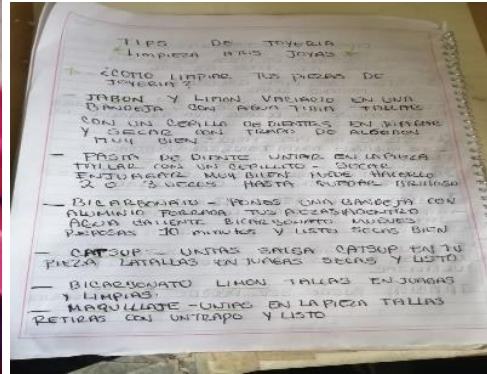 TIPS DE JOYERIA
LIMPIEZA A TUS JOYAS
¿COMO LIMPIAR TUS PIEZAS DE
JOYERIA?
- JABON Y LIMON VACIARLO EN UNA
BANDEJA CON AGUA TIBIA TALLAR
CON UN CEPILLO DE DIENTES ENJUAGAR
Y SECAR CON TRAPO DE ALGODON
MUY BIEN
- PASTA DE DIENTE UNTAR EN LA PIEZA
TALLAR CON UN CEPILLITO - SECAR
ENJUAGAR MUY BIEN PUEDE HACERLO
2 O 3 VECES HASTA QUEDAR BRILLOSO
- BICARBONATO - PONES UNA BANDEJA CON
ALUMINIO FORRADA TUS PIEZAS ADENTRO
AGUA CALIENTE BICARBONATO MUEVES
REPOSAS 10 minutos Y LISTO SECAS BIEN
- CATSUP - UNTAS SALSA CATSUP EN TU
PIEZA LA TALLAS ENJUAGAS SECAS Y LISTO
- BICARBONATO LIMON TALLAS ENJUAGAS
Y LIMPIAS
- MAQUILLAJE - UNTAS EN LA PIEZA TALLAS
RETIRAS CON UN TRAPO Y LISTO